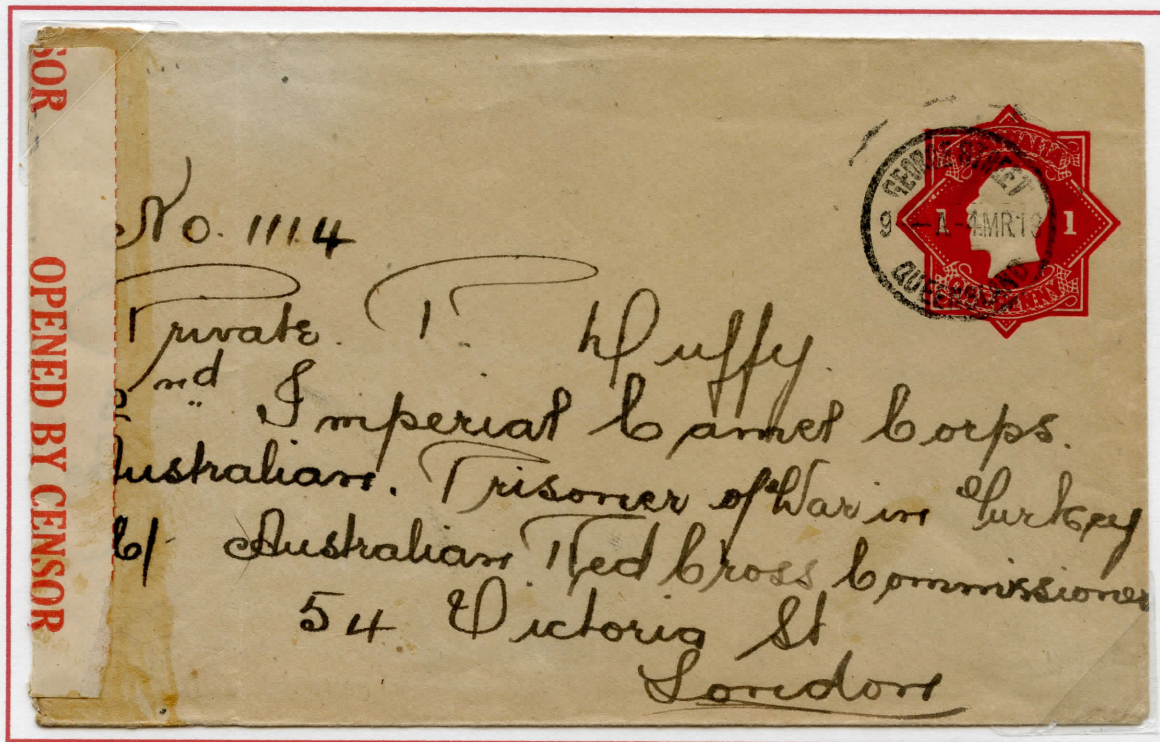 SOR OPENED BY CENSOR
GEORGE STREET
9 -A-4MR19
QUEENSLAND
1 1
No. 1114
Private. P. Duffy.
nd Imperial Camel Corps.
Australian. Prisoner of War in Turkey
C/- Australian Red Cross Commissioner
54 Victoria St
London